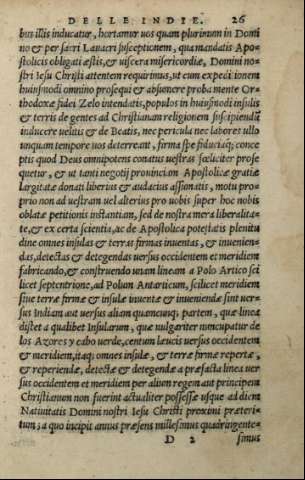 DELLE INDIE. 26
bus illis inducatur, hortamur uos quam plurimum in Domi
no & per sacri Lauacri susceptionem, qua mandatis Apo-
stolicis obligati estis, & uiscera misericordiæ, Domini no-
stri Iesu Christi attentem requirimus, ut cum expeditionem
huiusmodi omnino prosequi & absumere proba mente Or-
thodoxæ fidei Zelo intendatis, populos in huiusmodi insulis
& terris de gentes ad Christianam religionem suscipiendum
inducere uelitis & de Beatis, nec pericula nec labores ullo
unquam tempore uos deterreant, firma spe fiduciaq; conce
ptis quod Deus omnipotens conatus uestras fœliciter prose
quetur, & ut tanti negotij prouinciam Apostolicæ gratiæ
largitate donati liberius & audacius assumatis, motu pro-
prio non ad uestram uel alterius pro uobis super hoc nobis
oblatæ petitionis instantiam, sed de nostra mera liberalita-
te, & ex certa scientia, ac de Apostolica potestatis plenitu
dine omnes insulas & terras firmas inuentas, & inuenien-
das, detectas & detegendas uersus occidentem et meridiem
fabricando, & construendo unam lineam a Polo Artico sci
licet septentrione, ad Polum Antarticum, scilicet meridiem
siue terræ firmæ & insulæ inuentæ & inueniendæ sint uer-
sus Indiam aut uersus aliam quamcunq; partem, quæ linea
distet a qualibet Insularum, quæ uulgariter nuncupatur de
los Azores y cabo uerde, centum leucis uersus occidentem
& meridiem, itaq; omnes insulæ, & terræ firmæ repertæ,
& reperiendæ, detectæ & detegendæ a præfacta linea uer
sus occidentem et meridiem per alium regem aut principem
Christianum non fuerint actualiter possessæ usque ad diem
Natiuitatis Domini nostri Iesu Christi proximi præteri-
tum; a quo incipit annus præsens millesimus quadringente-
D 2 simus